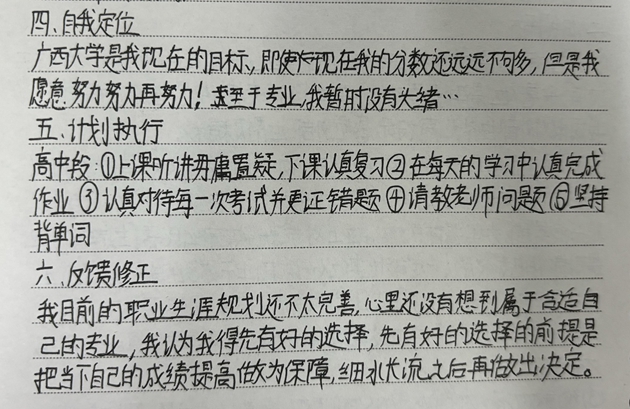 四、自我定位
广西大学是我现在的目标，即使现在我的分数还远远不够，但是我
愿意努力努力再努力！至于专业，我暂时没有头绪…
五、计划执行
高中段：①上课听讲毋庸置疑，下课认真复习②在每天的学习中认真完成
作业③认真对待每一次考试并更正错题④请教老师问题⑤坚持
背单词
六、反馈修正
我目前的职业生涯规划还不太完善，心里还没有想到属于合适自
己的专业，我认为我得先有好的选择，先有好的选择的前提是
把当下自己的成绩提高做为保障，细水长流之后再做出决定。